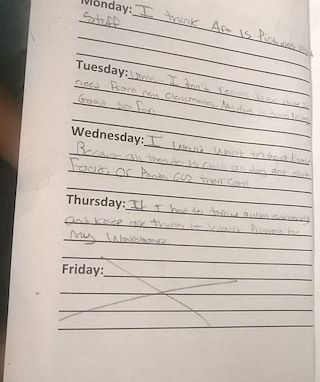 Monday: I think Art Is Pictures and
Stuff
Tuesday: Umm. I don't really know what I
need From my classmates.
Good so far.
Wednesday: I Would Want to be a
Because all they do is chill all day and
Food. Or Panda cus their cool
Thursday: If I had to throw away everything
and keep one thing It would
My Workbook
Friday: